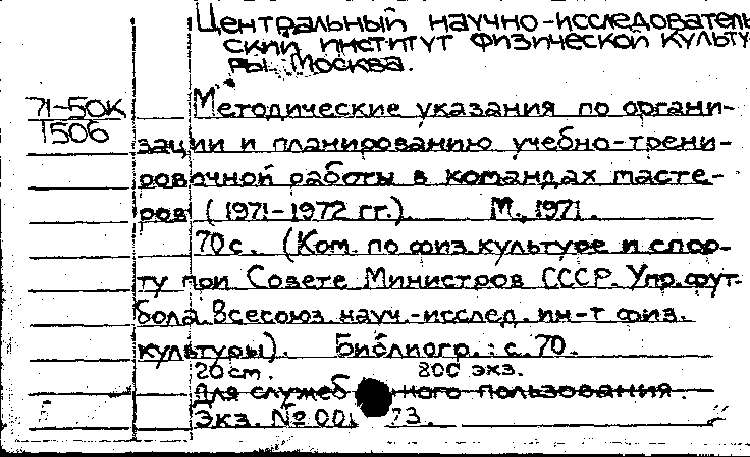 Центральный научно-исследователь
ский институт физической культу
ры. Москва.
71-50К
1506
Методические указания по органи-
зации и планированию учебно-трени-
ровочной работы в командах масте-
ров (1971-1972 гг.). М., 1971.
70 с. (Ком. по физ. культуре и спор-
ту при Совете Министров СССР. Упр. фут-
бола. Всесоюз. науч.-исслед. ин-т физ.
культуры). Библиогр.: с. 70.
20 см. 800 экз.
Для служеб ного пользования.
Экз. № 00 73.